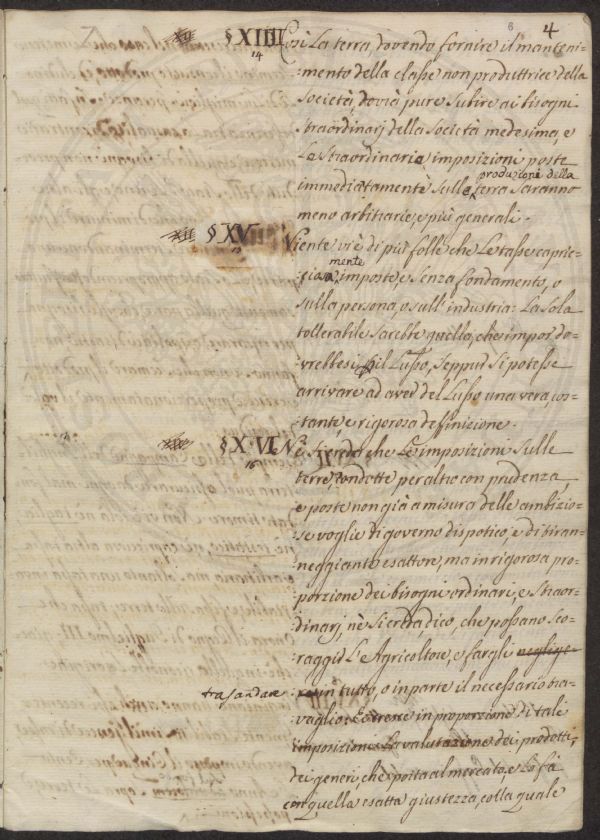 6 4
§XIIII Così La terra, dovendo fornire il manteni:
14
:mento della classe non produttrice della
società, dovrà pure subire ai bisogni
straordinarj della società medesima, e
Le straordinarie imposizioni poste
produzioni della
immediatamente sulle terra saranno
meno arbitrarie, e più generali.
XII §XV Niente vi è di più folle che Le tasse capric:
mente
:ciosa imposte, e senza fondamento, o
sulla persona, o sull'industria: La sola
tollerabile sarebbe quella, che impor do:
:vrebbesi sul Lusso, seppur si potesse
arrivare ad aver del Lusso una vera, cos:
:tante e rigorosa deffinizione.
§XVI Nè si creda che Le imposizioni sulle
16
terre, condotte peraltro con prudenza,
e poste non già a misura delle ambizio:
:se voglie di governo dispotico, e di tiran:
:neggiante esattore, ma in rigorosa pro:
:porzione dei bisogni ordinarj, e straor:
:dinarj, nè si creda, dico, che possano sco:
:raggir L'Agricoltore, e fargli neglige:
trasandare :re in tutto, o in parte il necessario tra:
:vaglio: Cresce in proporzione di tale
imposizione La valutazione dei prodotti,
dei generi, che porta al mercato, e Lo fà
con quella esatta giustezza, colla quale